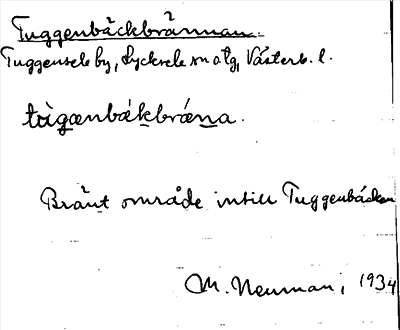 Tuggenbäckbrännan.
Tuggensele by, Lycksele sn o tg, Västerb. l.
tùgænbækbræna.
Bränt område intill Tuggenbäcken
M. Neuman, 1934